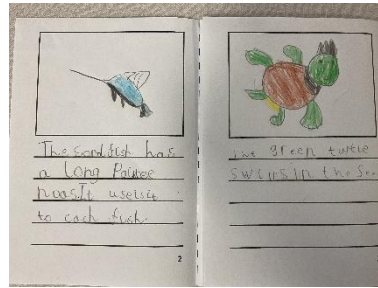 The sordfish has
a long Pointee
noos.It usesit
to cach fish.
2
green turtle
swims in the Sea